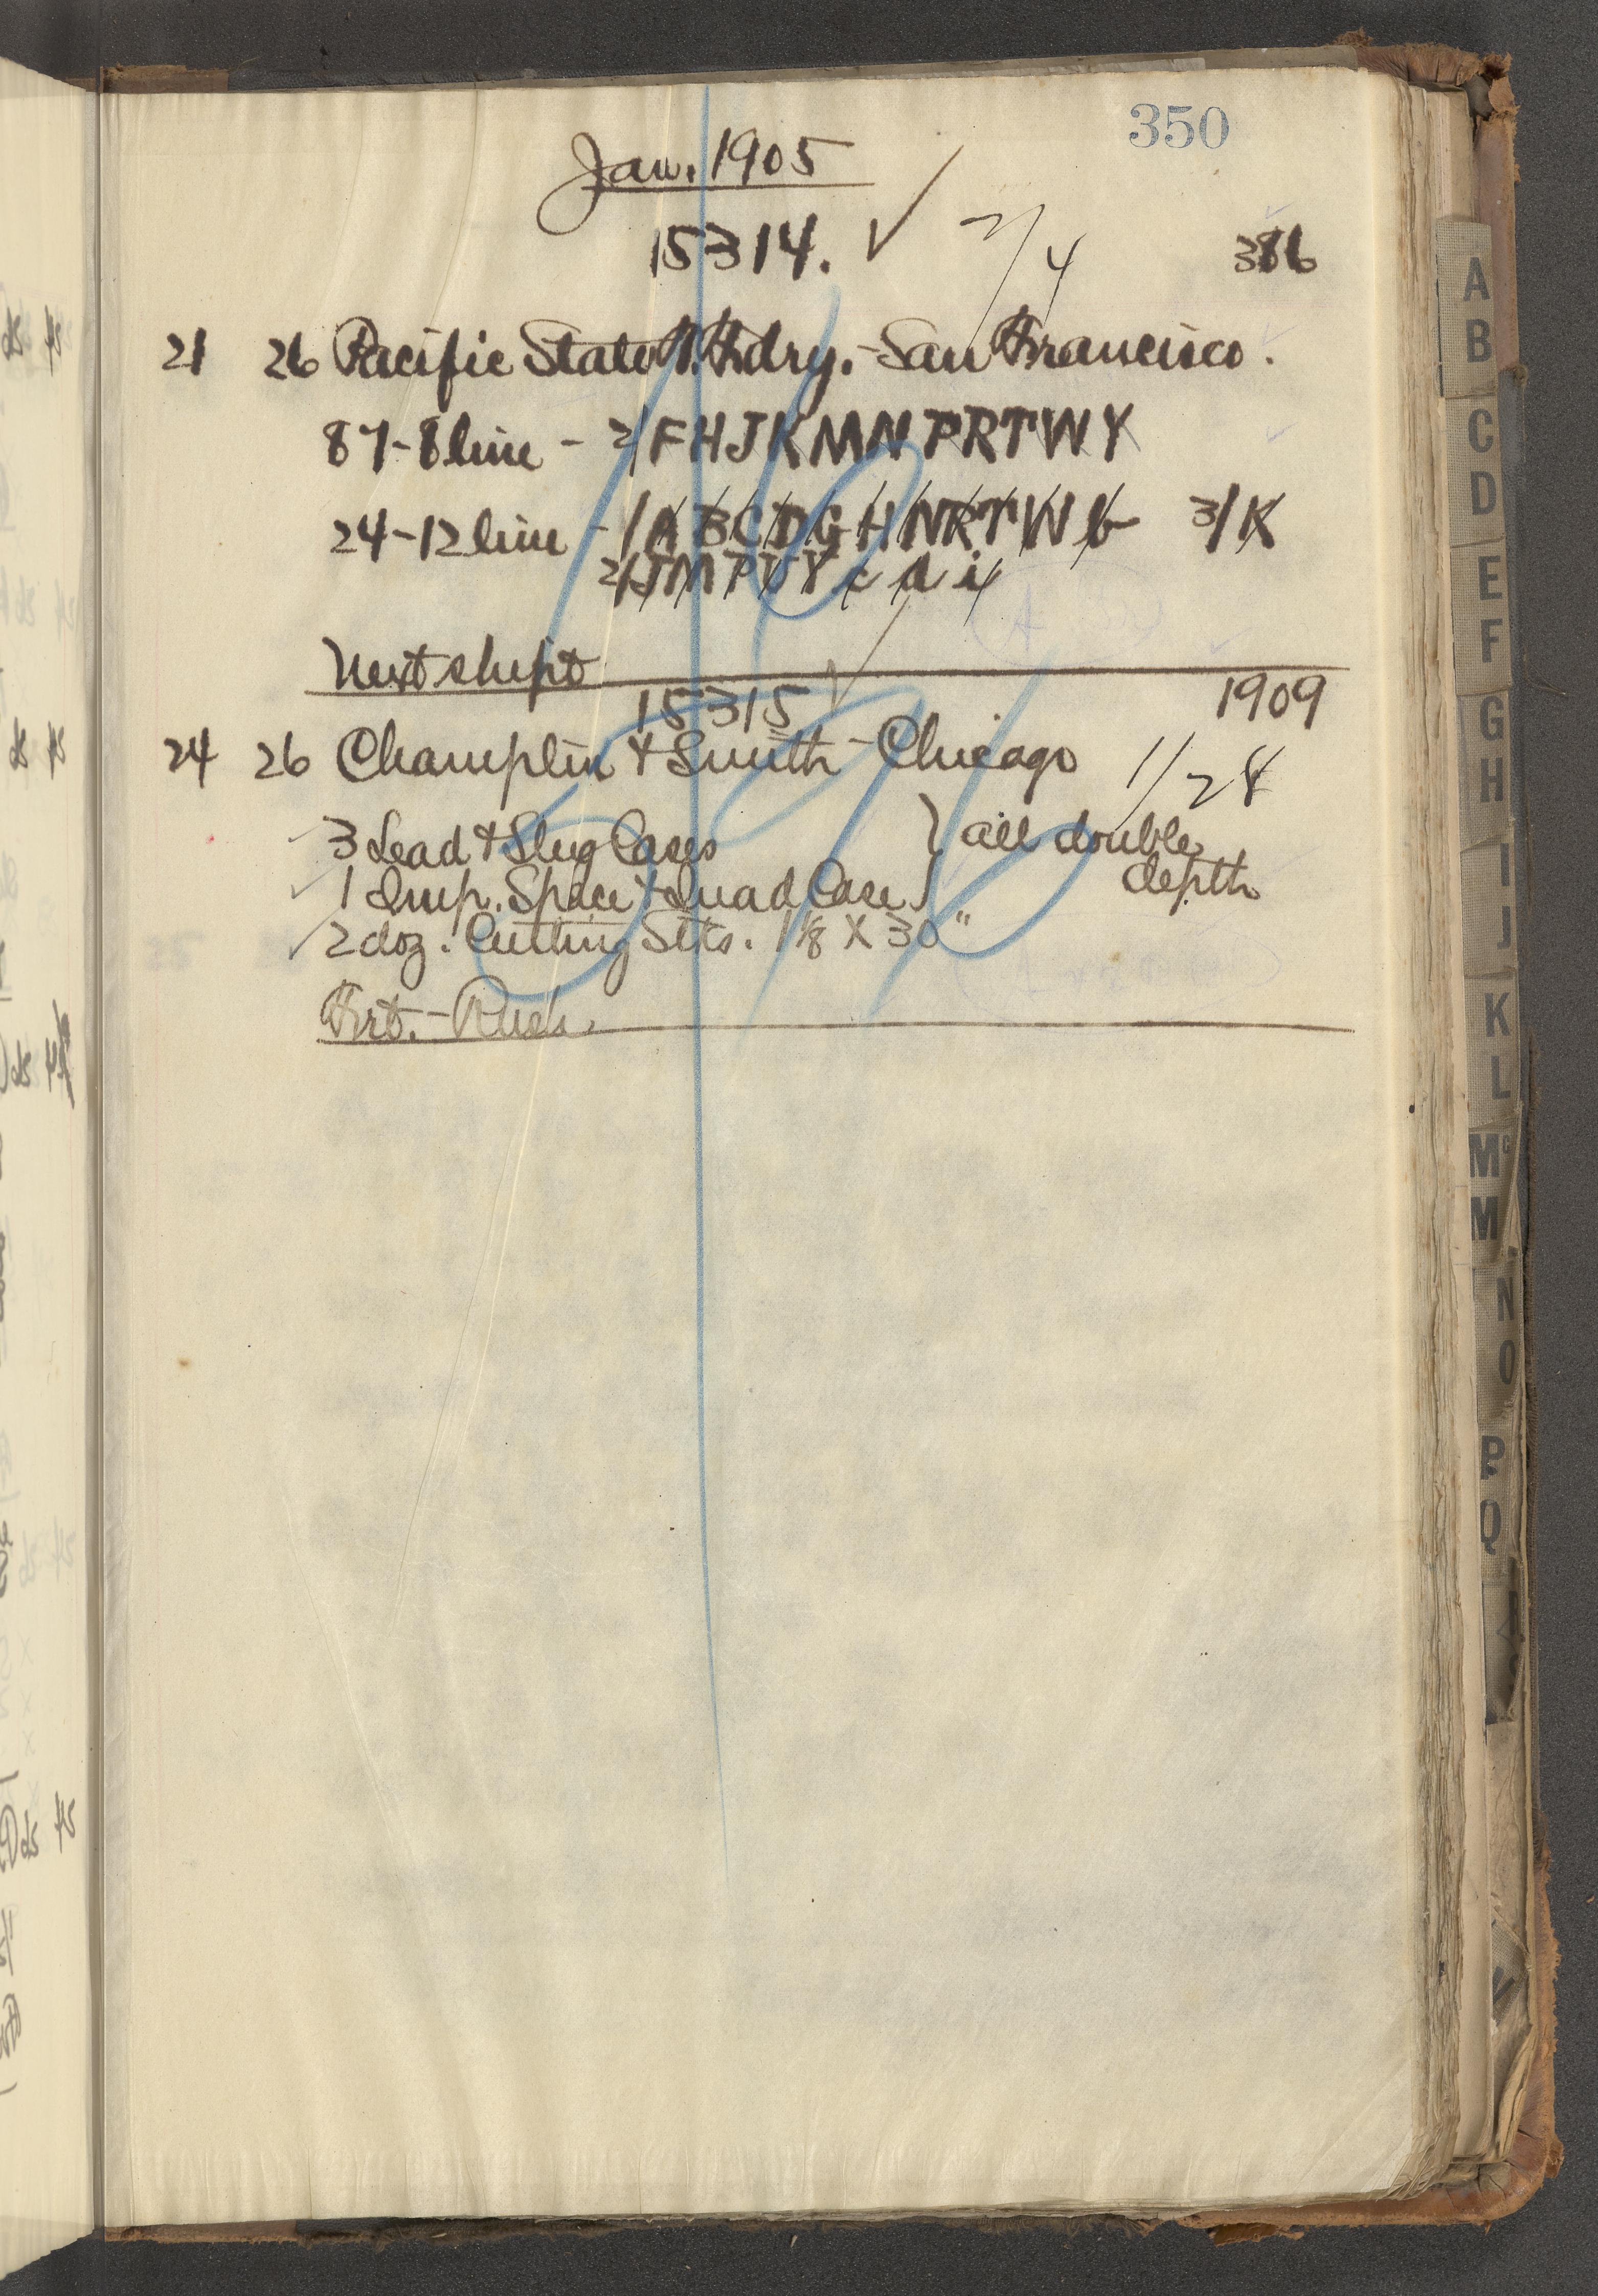 350
Jan. 1905
15314. ✓ 2/4 386
21 26 Pacific States T. Fdry. - San Francisco.
87-8 line - 2/ F H J K M N P R T W Y
24-12 line - 1/ A B C D G H N R T W b 3/ K
2/ J M P U Y c d i
Next shipt
15315 ✓ 1909
24 26 Champlin & Smith - Chicago 1/28
3 Lead & Slug Cases } all double
1 Imp. Space & Quad Case } depth
2 doz. Cutting Stks. 1 1/8 X 30"
Frt. - Rush.
A
B
C
D
E
F
G
H
I
J
K
L
Mc
M
N
O
P
Q